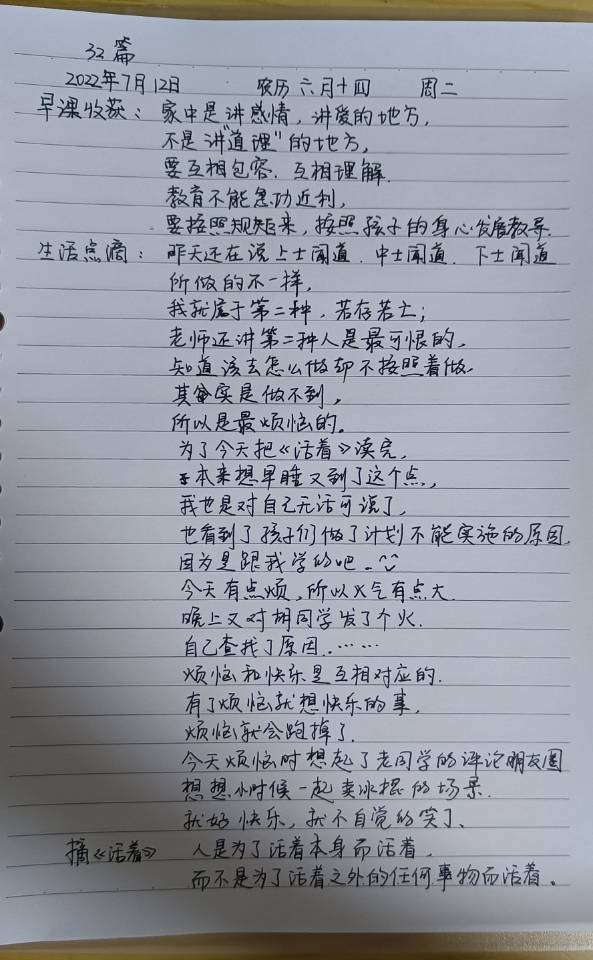 32篇
2022年7月12日 农历六月十四 周二
早课收获：家中是讲感情，讲爱的地方，
不是讲"道理"的地方，
要互相包容、互相理解.
教育不能急功近利，
要按照规矩来，按照孩子的身心发展教导.
生活点滴：昨天还在说上士闻道、中士闻道、下士闻道
所做的不一样，
我就属于第二种，若存若亡；
老师还讲第二种人是最可恨的，
知道该去怎么做却不按照着做.
其实是做不到，
所以是最烦恼的。
为了今天把《活着》读完，
本来想早睡又到了这个点，
我也是对自己无话可说了，
也看到了孩子们做了计划不能实施的原因，
因为是跟我学的吧。
今天有点烦，所以火气有点大.
晚上又对胡同学发了个火.
自己查找了原因……
烦恼和快乐是互相对应的.
有了烦恼就想快乐的事，
烦恼就会跑掉了.
今天烦恼时想起了老同学的评论朋友圈
想想小时候一起卖冰棍的场景.
就好快乐，就不自觉的笑了、
摘《活着》 人是为了活着本身而活着，
而不是为了活着之外的任何事物而活着。